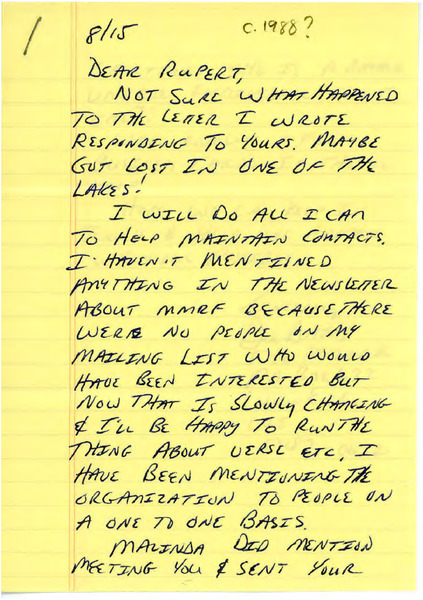 /
8/15
c. 1988?
DEAR RUPERT,
NOT SURE WHAT HAPPENED
TO THE LETTER I WROTE
RESPONDING TO YOURS. MAYBE
GOT LOST IN ONE OF THE
LAKES!
I WILL DO ALL I CAN
TO HELP MAINTAIN CONTACTS.
I HAVEN'T MENTIONED
ANYTHING IN THE NEWSLETTER
ABOUT MMRF BECAUSE THERE
WERE NO PEOPLE ON MY
MAILING LIST WHO WOULD
HAVE BEEN INTERESTED BUT
NOW THAT IS SLOWLY CHANGING
& I'LL BE HAPPY TO RUN THE
THING ABOUT VERSL ETC. I
HAVE BEEN MENTIONING THE
ORGANIZATION TO PEOPLE ON
A ONE TO ONE BASIS.
MALINDA DID MENTION
MEETING YOU & SENT YOUR